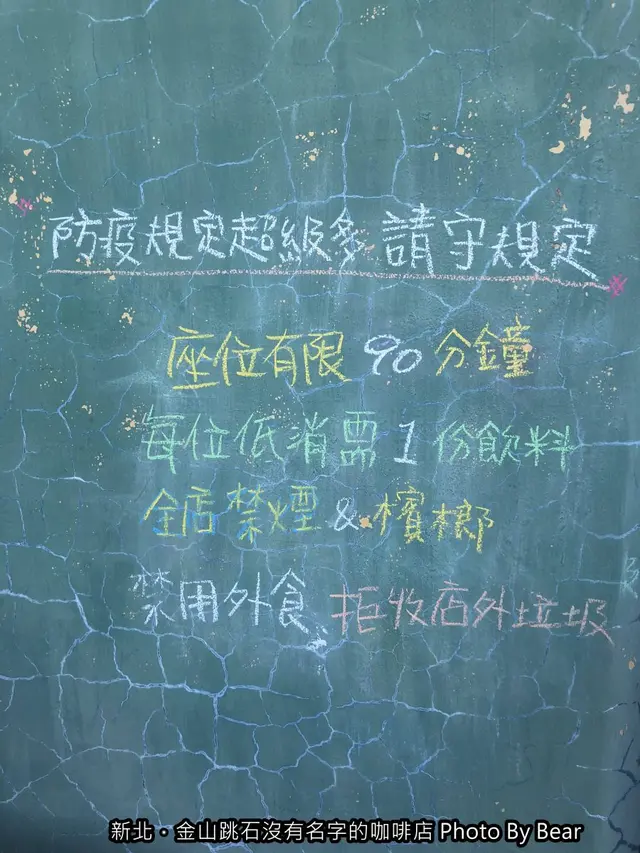 防疫規定超級多 請守規定
座位有限 90 分鐘
每位低消需 1 份飲料
全店禁煙 & 檳榔
禁用外食、拒收店外垃圾
新北・金山跳石沒有名字的咖啡店 Photo By Bear